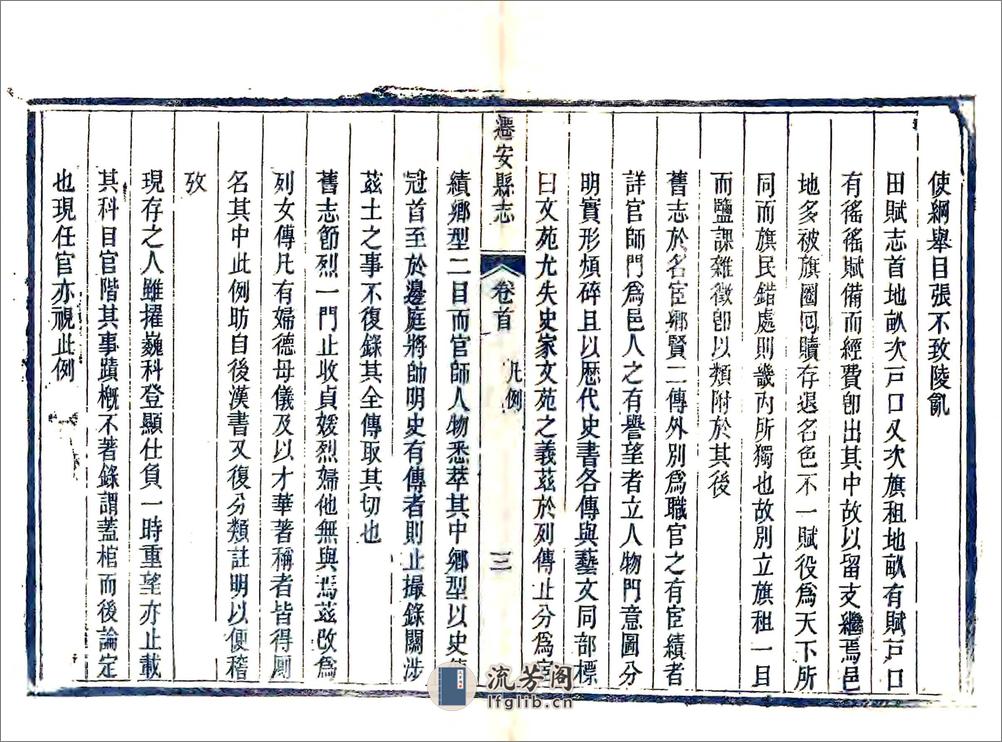 使綱舉目張不致陵亂
田賦志首地畝次戸口又次旗租地畝有賦戸口
有徭徭賦備而經費卽出其中故以留支繼焉邑
地多被旗圈囘贖存退名色不一賦役爲天下所
同而旗民錯處則畿內所獨也故别立旗租一目
而鹽課雜徵卽以類附於其後
舊志於名宦鄉賢二傳外别爲職官之有宦績者
詳官師門爲邑人之有譽望者立人物門意圖分
明實形煩碎且以歷代史書各傳與藝文同部標
曰文苑尤失史家文苑之義茲於列傳止分爲宦
遷安縣志
卷首
凡例
三
績鄉型二目而官師人物悉萃其中鄉型以史傳
冠首至於邊庭將帥明史有傳者則止撮錄關涉
茲土之事不復錄其全傳取其切也
舊志節烈一門止收貞媛烈婦他無與焉茲改爲
列女傳凡有婦德母儀及以才華著稱者皆得厠
名其中此例昉自後漢書又復分類註明以便稽
攷
現存之人雖擢巍科登顯仕負一時重望亦止載
其科目官階其事蹟槪不著錄謂蓋棺而後論定
也現任官亦視此例
流芳阁
lfglib.cn